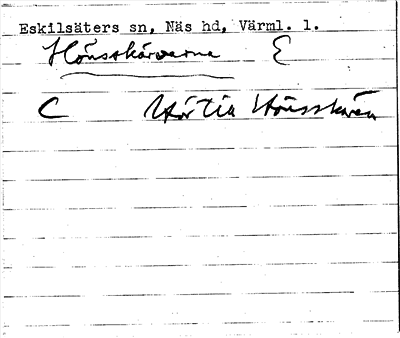 Eskilsäters sn, Näs hd, Värml. l.
Hönsskärverna E
C Hör till Hönsskären